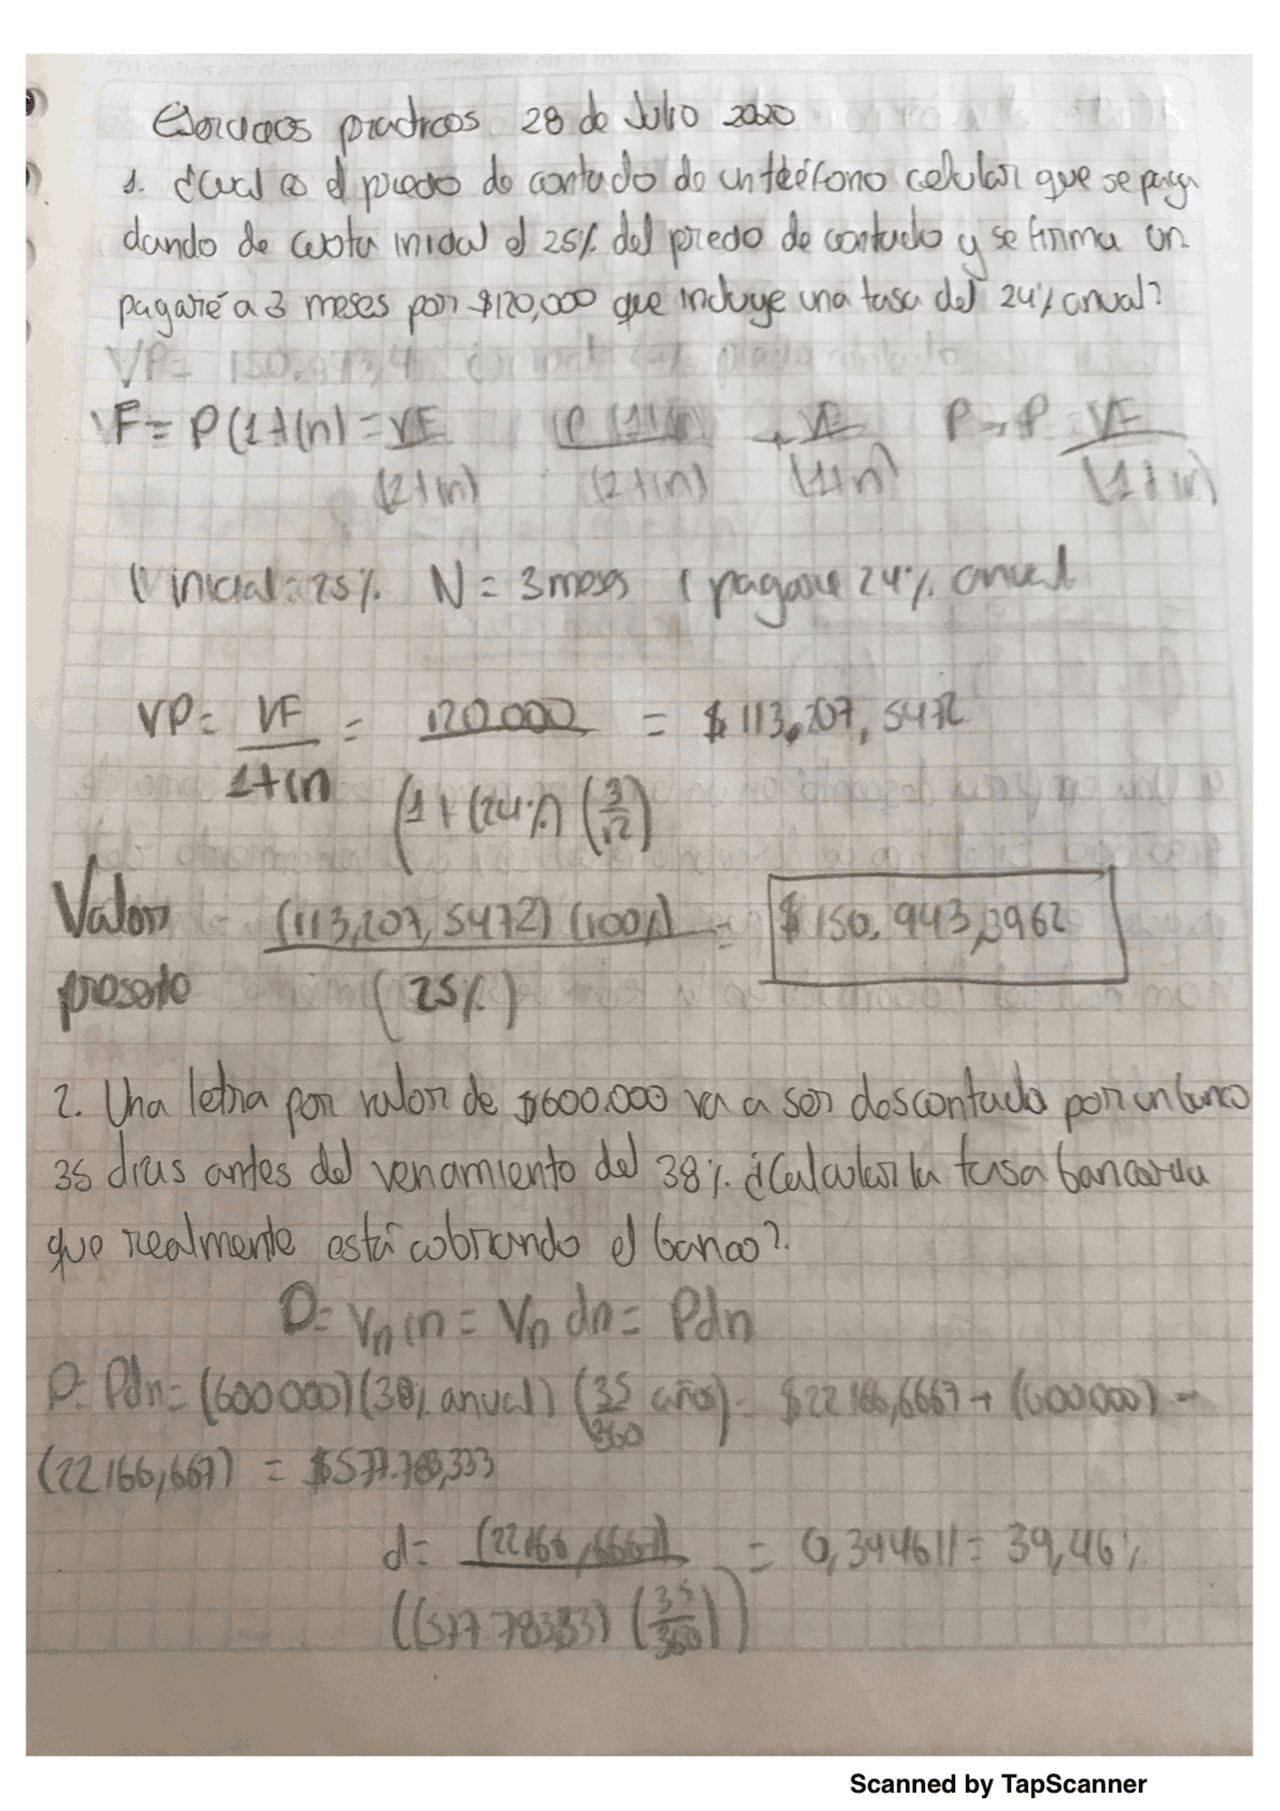 Ejercicios practicos 28 de Julio 2020
1. ¿Cual es el precio de contado de un teléfono celular que se paga
dando de cuota inicial el 25% del precio de contado y se firma un
pagaré a 3 meses por $120,000 que incluye una tasa del 24% anual?
VP= 150.943,4
VF= P(1+in) = VF/(1+in) P(1+in)/(1+in) → VF/(1+in) P → P VF/(1+in)
inicial = 25% N = 3 meses i pagare 24% anual
VP= VF/1+in = 120.000/(1+(24%)(3/12)) = $113,207,5472
Valor presente (113,207,5472)(100%)/(25%) = $150.943,3962
2. Una letra por valor de $600.000 va a ser descontada por un banco
35 dias antes del vencimiento del 38% ¿Calcular la tasa bancaria
que realmente está cobrando el banco?.
D= Vn in = Vn dn = Pdn
D= Pdn= (600000)(38% anual) (35/360 años) = $22166,6667 → (600000) -
(22166,667) = $577.783,333
d= (22166,6667)/((57778333)(35/360)) = 0,394611 = 39,46%
Scanned by TapScanner